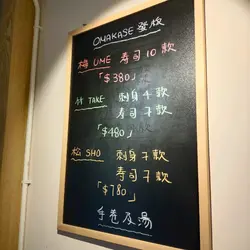 OMAKASE 發版
梅 UME 寿司10款
「$380」
竹 TAKE 刺身4款
寿司7款
「$480」
松 SHO 刺身7款
寿司7款
「$780」
手卷及湯